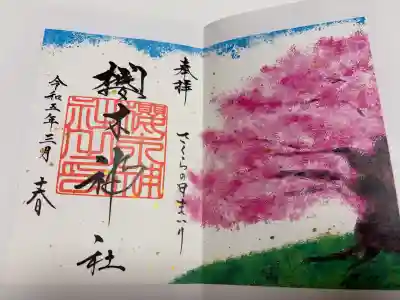 奉拝
さくらの日まいり
櫻木神社
櫻木神
社之印
令和五年三月
春